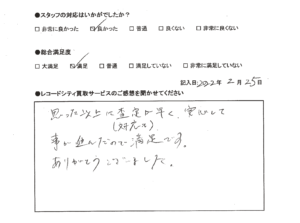 ●スタッフの対応はいかがでしたか？
□非常に良かった ☑良かった □普通 □良くない □非常に良くない
●総合満足度
□大満足 ☑満足 □普通 □満足していない □非常に満足していない
記入日2022年2月25日
●レコードシティ買取サービスのご感想を聞かせてください
思った以上に査定が早く、安心して
(対応も)
事が進んだので満足です。
ありがとうございました。